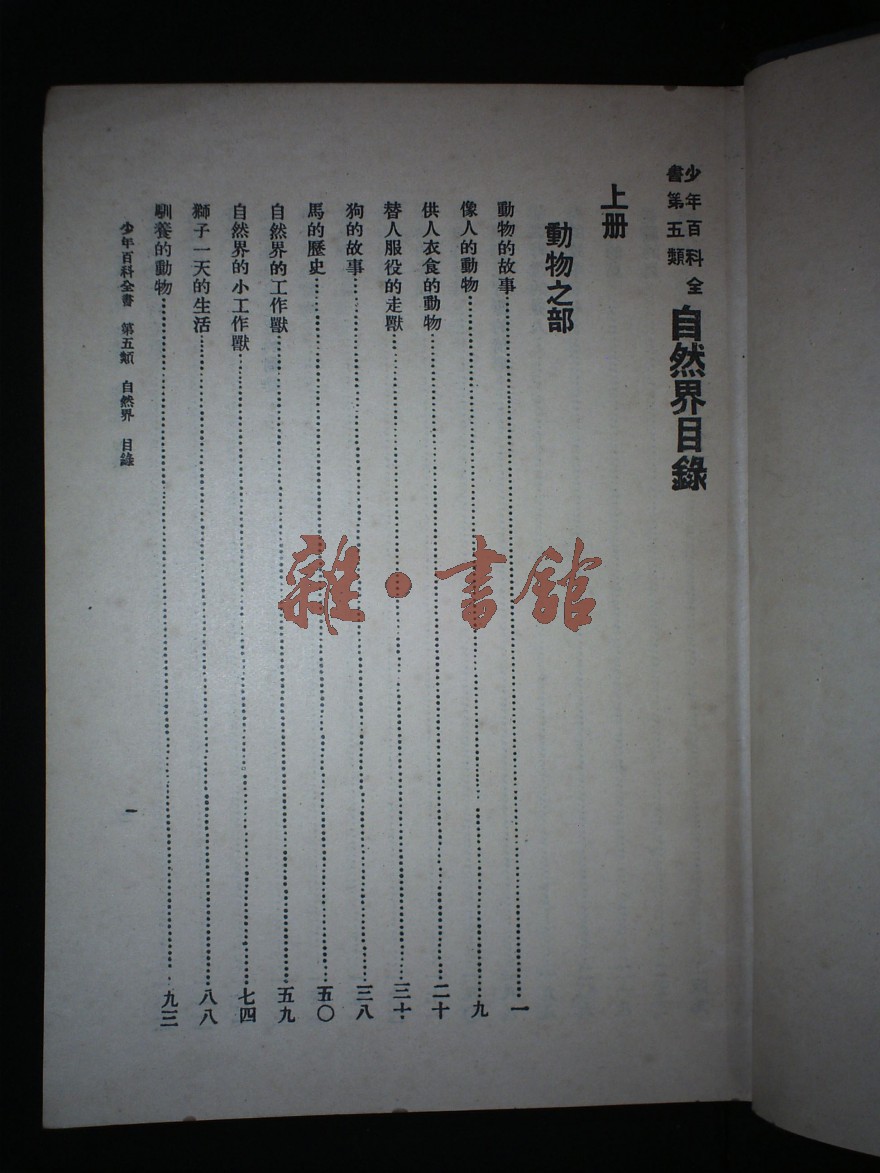 少年百科全
書第五類
自然界目錄
上册
動物之部
動物的故事……一
像人的動物……九
供人衣食的動物……二十
替人服役的走獸……三十
狗的故事……三八
馬的歷史……五〇
自然界的工作獸……五九
自然界的小工作獸……七四
獅子一天的生活……八八
馴養的動物……九三
少年百科全書 第五類 自然界 目錄
一
雜·書館